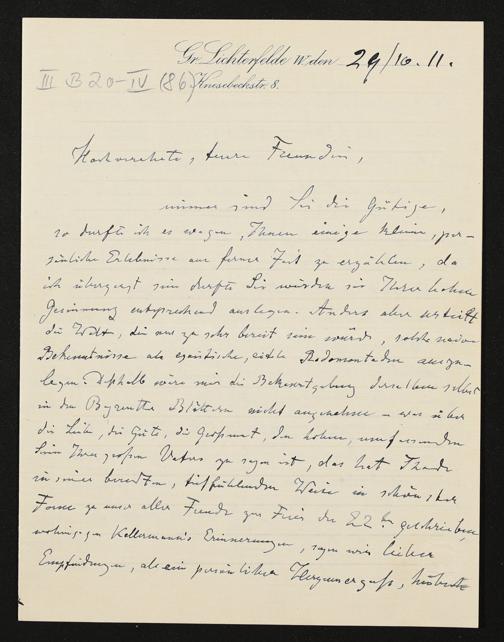 Gr. Lichterfelde W. den 29/10.11.
III B 20-IV (86) Knesebeckstr. 8.
Hochverehrte, teure Freundin,
immer sind Sie die Gütige,
so durfte ich es wagen, Ihnen einige kleine, per-
sönliche Erlebnisse aus ferner Zeit zu erzählen, da
ich überzeugt sein durfte Sie würden sie Ihrer hohen
Gesinnung entsprechend auslegen. Anders aber urteilt
die Welt, die nur zu sehr bereit sein würde, solche naiven
Bekenntnisse als egoistische, eitle Rodomontaden auszu-
legen. Deshalb wäre mir die Bekanntgebung derselben selbst
in den Bayreuther Blättern nicht angenehm – was über
die Liebe, die Güte, die Grossmut, den hohen, umfassenden
Sinn Ihres grossen Vaters zu sagen ist, das hat Thode
in seiner beredten, tieffühlenden Weise in schönster
Form zu unser aller Freude zur Feier des 22ten geschrieben,
wohingegen Kellermann's Erinnerungen, sagen wir lieber
Empfindungen, als ein persönlicher Herzenserguss,